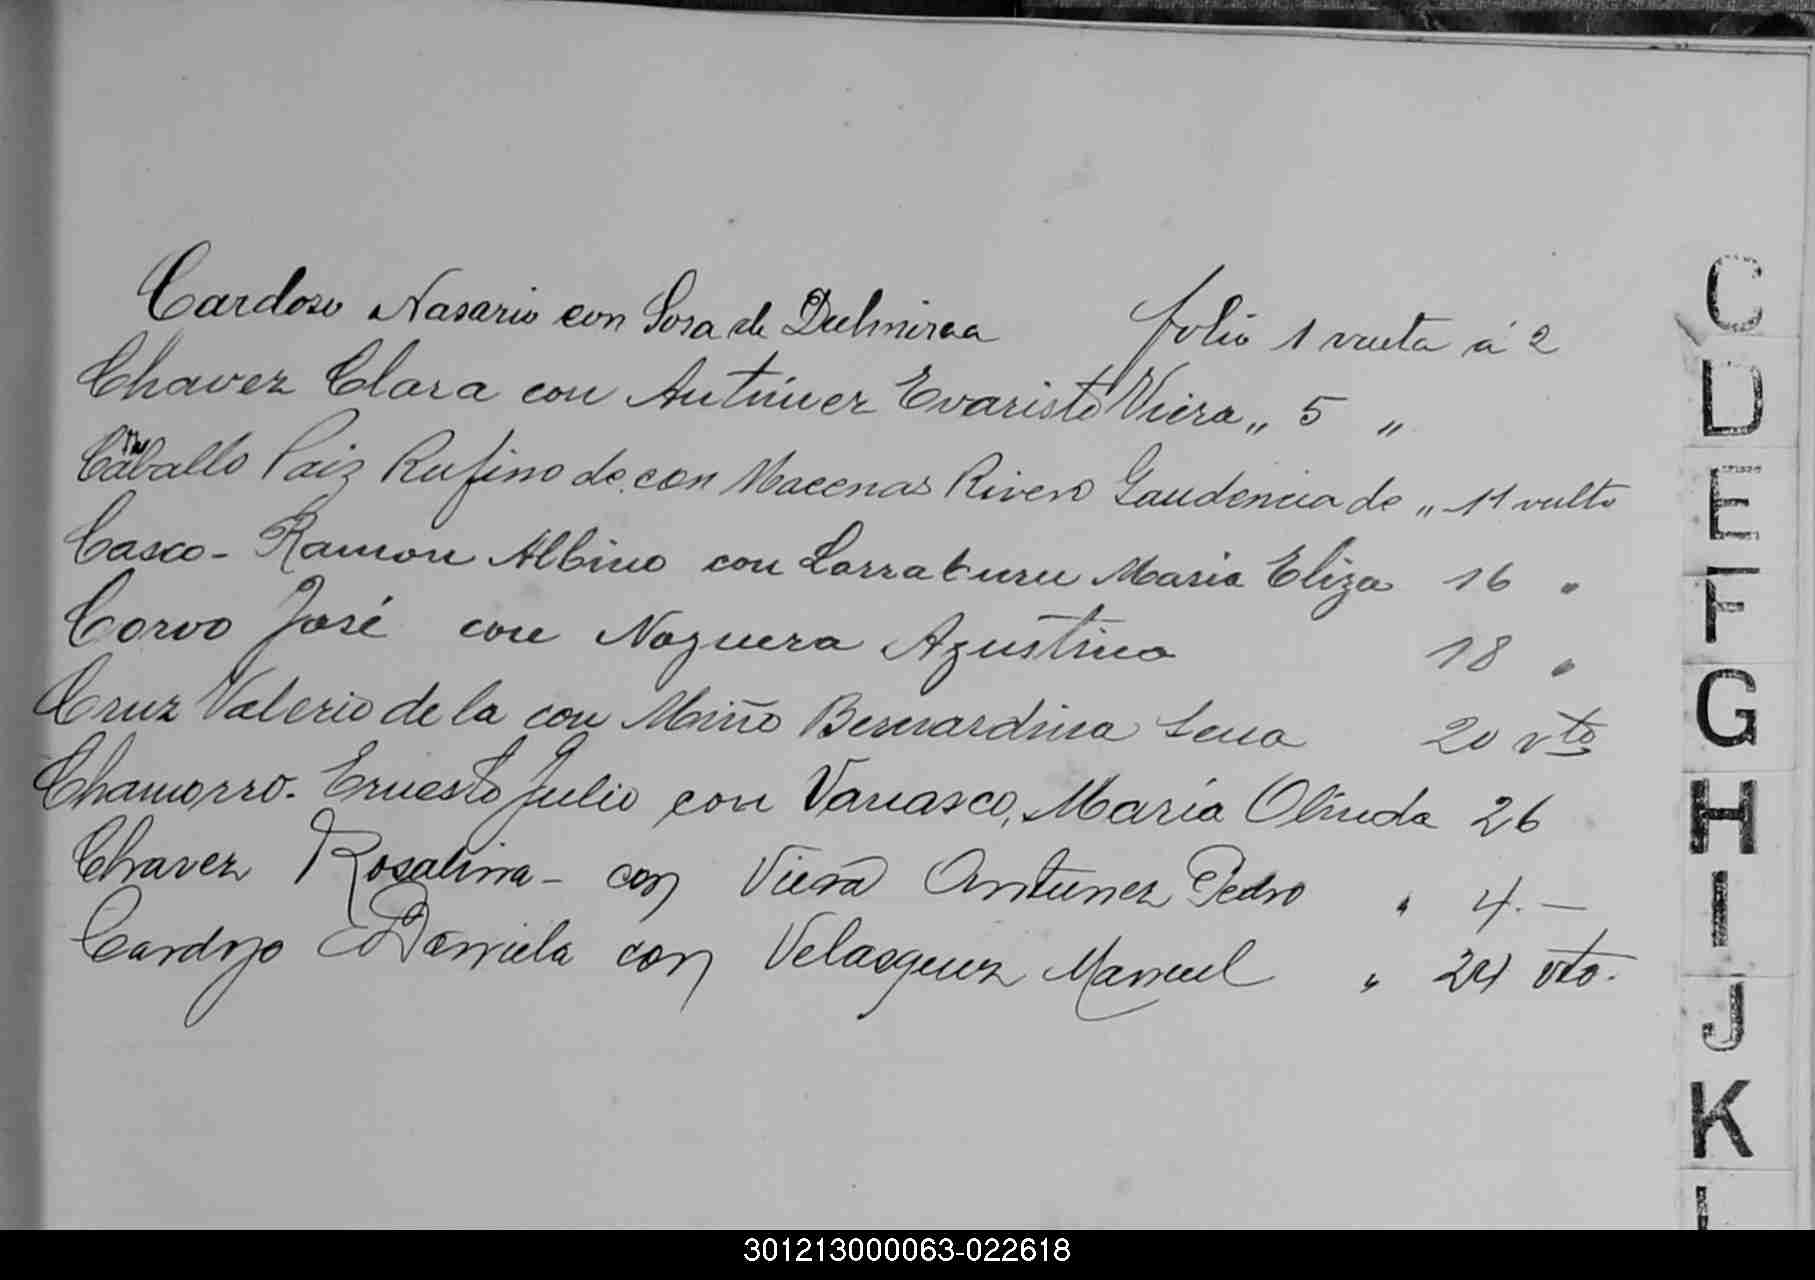 Cardoso Nasario con Sosa de Delmiraa folio 1 vuelta á 2
Chavez Clara con Antúnez Evaristo Viera „ 5 „
Caballo Paiz Rufino de con Macenas Rivero Gaudencia de „ 11 vulto
Casco - Ramon Albino con Larraburu Maria Eliza 16 „
Corvo José con Noguera Agustina 18 „
Cruz Valerio de la con Miño Bernardina Sena 20 vto
Chamorro - Ernesto Julio con Vanasco, María Olinda 26
Chavez Rosalina - con Viera Antunez Pedro „ 4. —
Daniela con Velasquez Manuel „ 24 vto.
C
D
E
F
G
H
I
J
K
301213000063-022618